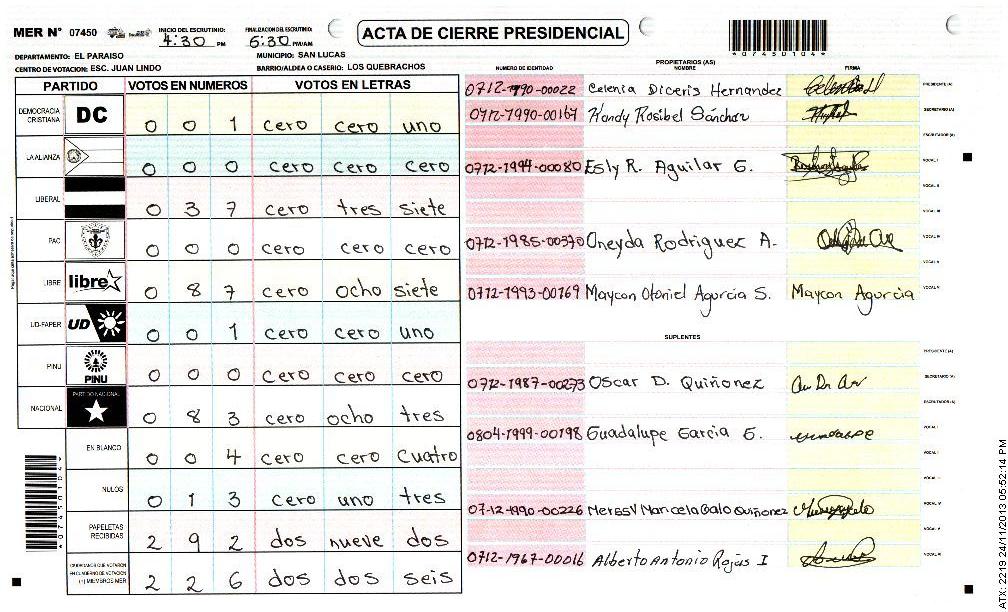 MER Nº 07450
INICIO DEL ESCRUTINIO: 4:30 PM
FINALIZACION DEL ESCRUTINIO: 6:30 PM/AM
ACTA DE CIERRE PRESIDENCIAL
*07450104*
DEPARTAMENTO: EL PARAISO
MUNICIPIO: SAN LUCAS
CENTRO DE VOTACION: ESC. JUAN LINDO
BARRIO/ALDEA O CASERIO: LOS QUEBRACHOS
PARTIDO VOTOS EN NUMEROS VOTOS EN LETRAS
DEMOCRACIA CRISTIANA DC 0 0 1 cero cero uno
LA ALIANZA 0 0 0 cero cero cero
LIBERAL 0 3 7 cero tres siete
PAC 0 0 0 cero cero cero
LIBRE libre 0 8 7 cero ocho siete
UD-FAPER UD 0 0 1 cero cero uno
PINU PINU 0 0 0 cero cero cero
NACIONAL PARTIDO NACIONAL 0 8 3 cero ocho tres
EN BLANCO 0 0 4 cero cero cuatro
NULOS 0 1 3 cero uno tres
PAPELETAS RECIBIDAS 2 9 2 dos nueve dos
CIUDADANOS QUE VOTARON EN CUADERNO DE VOTACION (+) MIEMBROS MER 2 2 6 dos dos seis
*07450104*
PROPIETARIOS (AS)
NUMERO DE IDENTIDAD NOMBRE FIRMA
0712-1990-00022 Celenia Diceris Hernandez PRESIDENTE (A)
0712-1990-00167 Kandy Rosibel Sánchez SECRETARIO (A)
ESCRUTADOR (A)
0712-1994-00080 Esly R. Aguilar G. VOCAL I
VOCAL II
VOCAL III
0712-1985-00370 Oneyda Rodriguez A. VOCAL IV
VOCAL V
0712-1993-00169 Maycon Otoniel Agurcia S. Maycon Agurcia
SUPLENTES
PRESIDENTE (A)
0712-1987-00273 Oscar D. Quiñonez SECRETARIO (A)
ESCRUTADOR (A)
0804-1999-00198 Guadalupe Garcia G. VOCAL I
07-12-1990-00226 Marcela Galo Quiñonez
0712-1967-00016 Alberto Antonio Rojas I
ATX: 2219 24/11/2013 05:52:14 PM